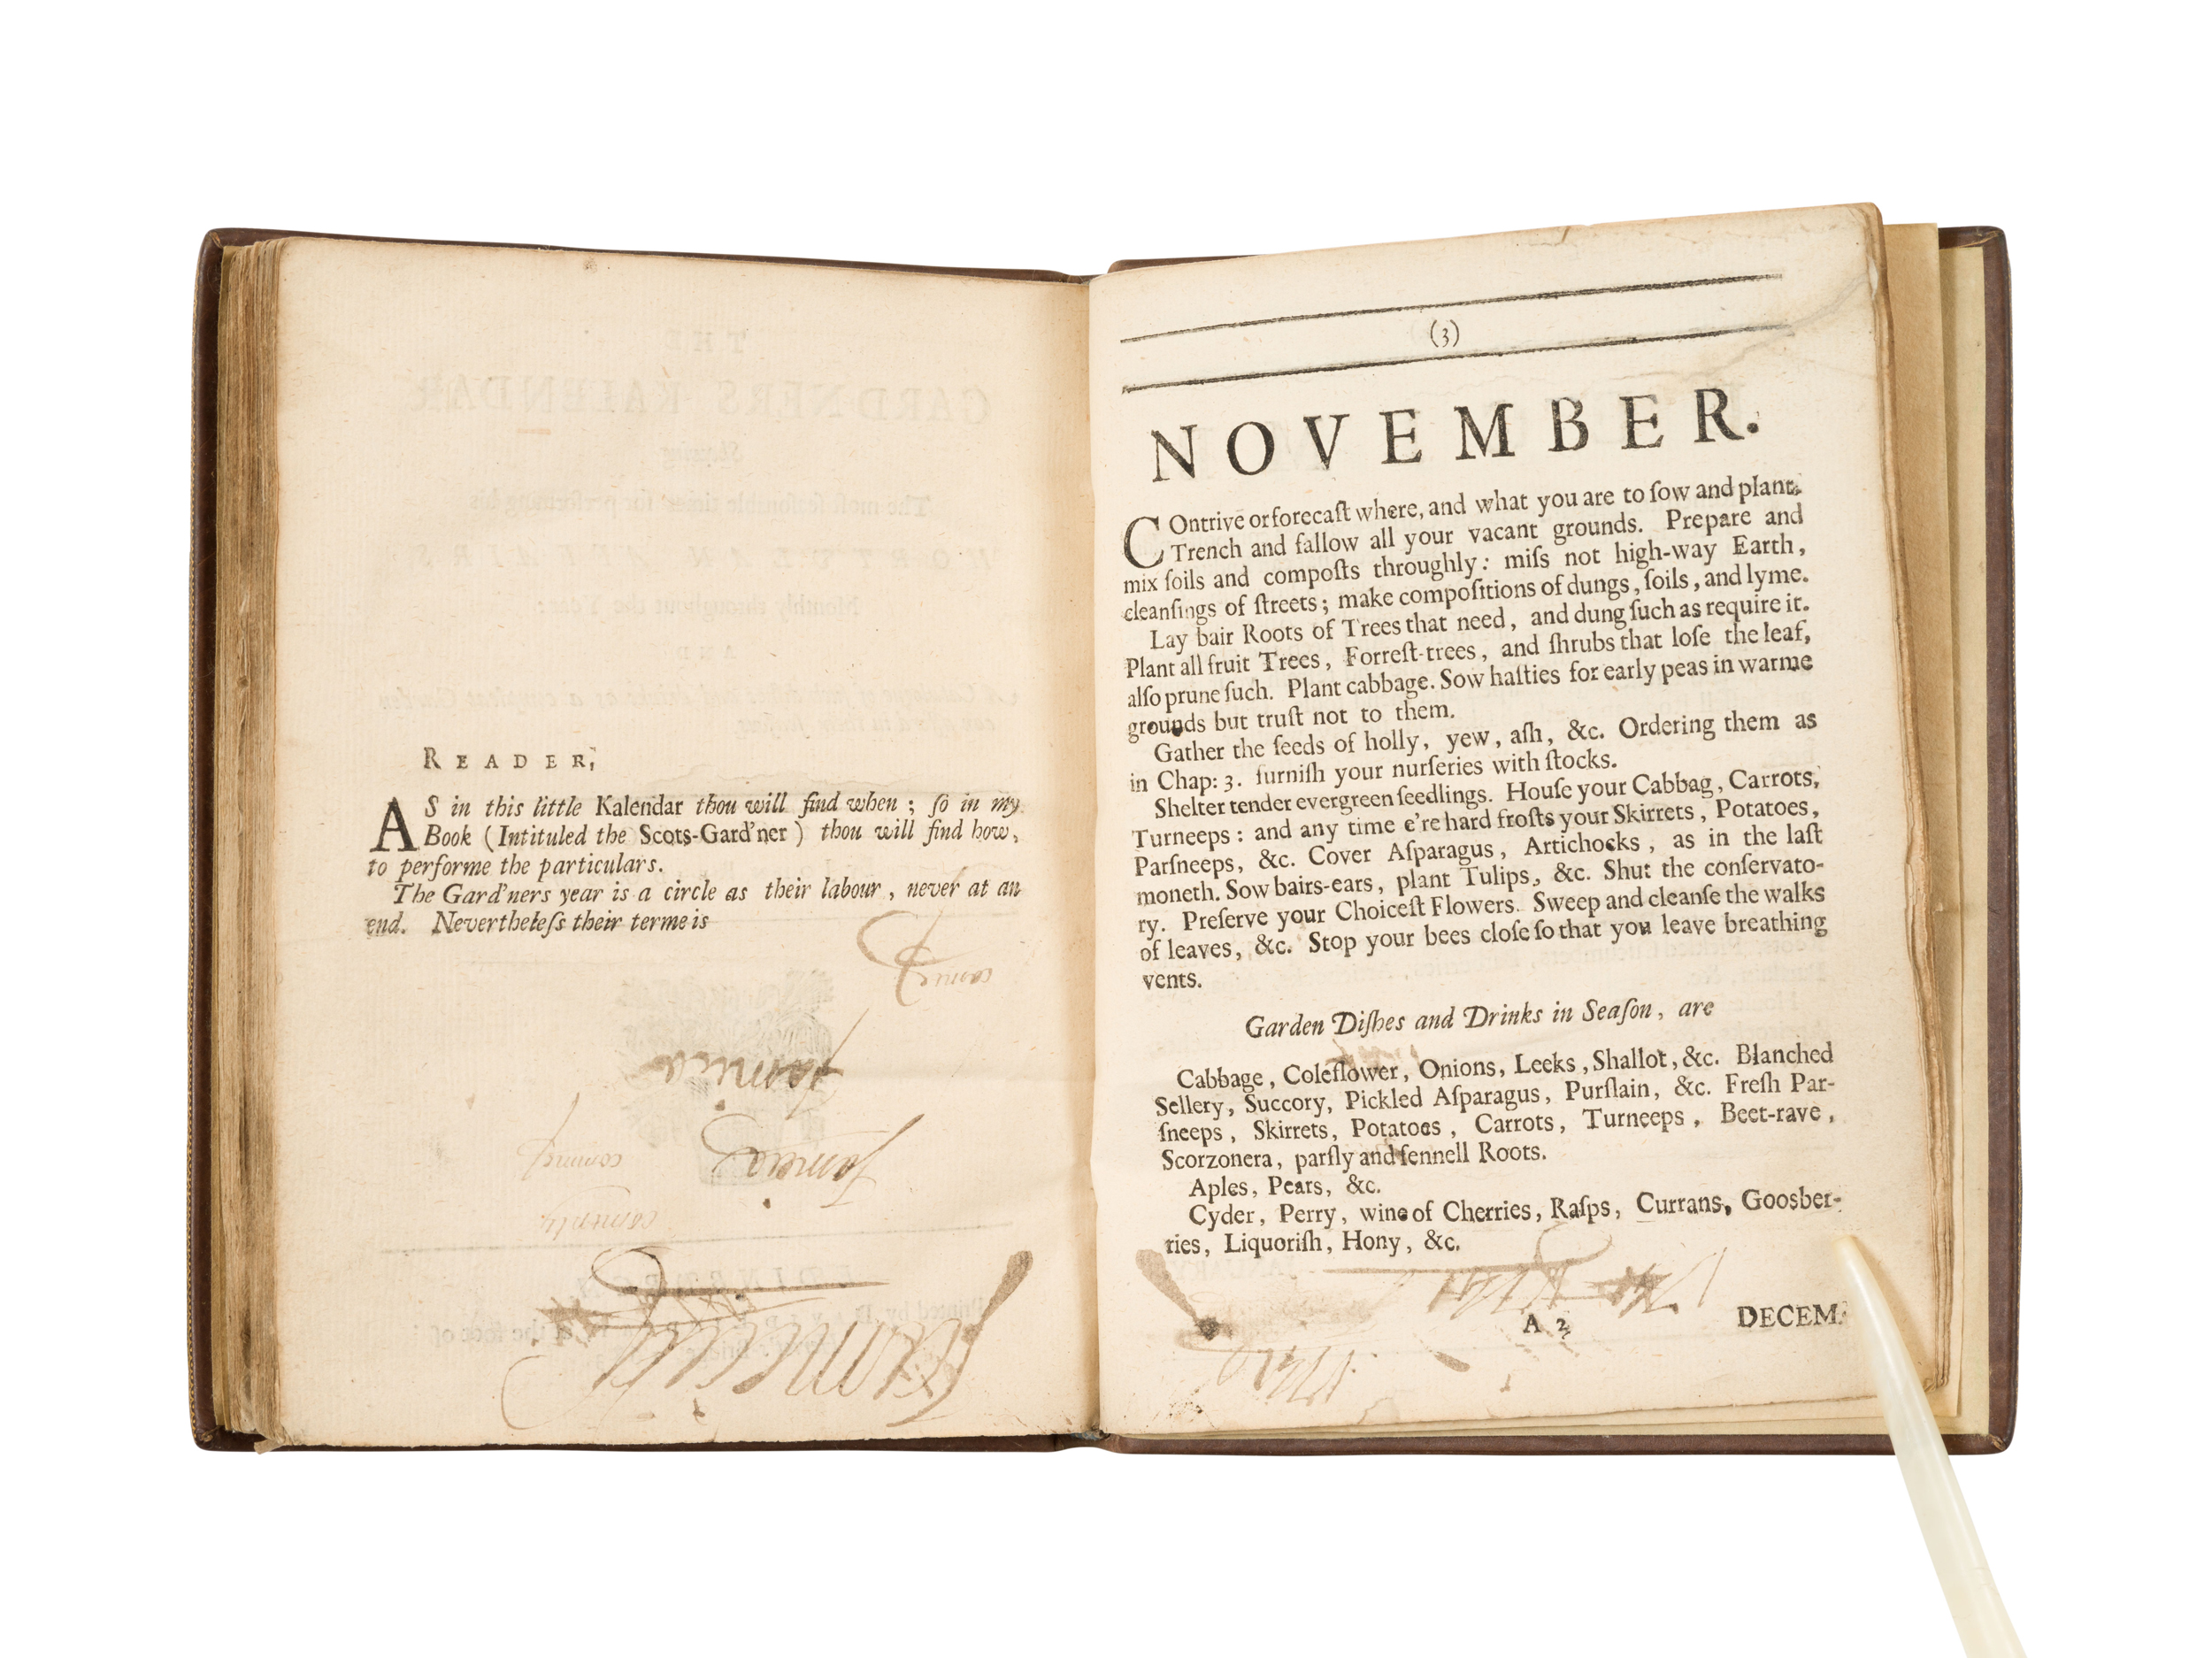 READER,
AS in this little Kalendar thou will find when ; ſo in my
Book (Intituled the Scots-Gard'ner) thou will find how,
to performe the particulars.
The Gard'ners year is a circle as their labour, never at an
end. Nevertheleſs their terme is
(3)
NOVEMBER.
COntrive or forecaſt where, and what you are to ſow and plant.
Trench and fallow all your vacant grounds. Prepare and
mix ſoils and compoſts throughly: miſs not high-way Earth,
cleanſings of ſtreets; make compoſitions of dungs, ſoils, and lyme.
Lay bair Roots of Trees that need, and dung ſuch as require it.
Plant all fruit Trees, Forreſt-trees, and ſhrubs that loſe the leaf,
alſo prune ſuch. Plant cabbage. Sow haſties for early peas in warme
grounds but truſt not to them.
Gather the ſeeds of holly, yew, aſh, &c. Ordering them as
in Chap: 3. furniſh your nurſeries with ſtocks.
Shelter tender evergreen ſeedlings. Houſe your Cabbag, Carrots,
Turneeps: and any time e're hard froſts your Skirrets, Potatoes,
Parſneeps, &c. Cover Aſparagus, Artichocks, as in the laſt
moneth. Sow bairs-ears, plant Tulips, &c. Shut the conſervato-
ry. Preſerve your Choiceſt Flowers. Sweep and cleanſe the walks
of leaves, &c. Stop your bees cloſe ſo that you leave breathing
vents.
Garden Diſhes and Drinks in Seaſon, are
Cabbage, Coleflower, Onions, Leeks, Shallot, &c. Blanched
Sellery, Succory, Pickled Aſparagus, Purſlain, &c. Freſh Par-
ſneeps, Skirrets, Potatoes, Carrots, Turneeps, Beet-rave,
Scorzonera, parſly and fennell Roots.
Aples, Pears, &c.
Cyder, Perry, wine of Cherries, Raſps, Currans, Goosber-
ries, Liquoriſh, Hony, &c.
A 2
DECEM.